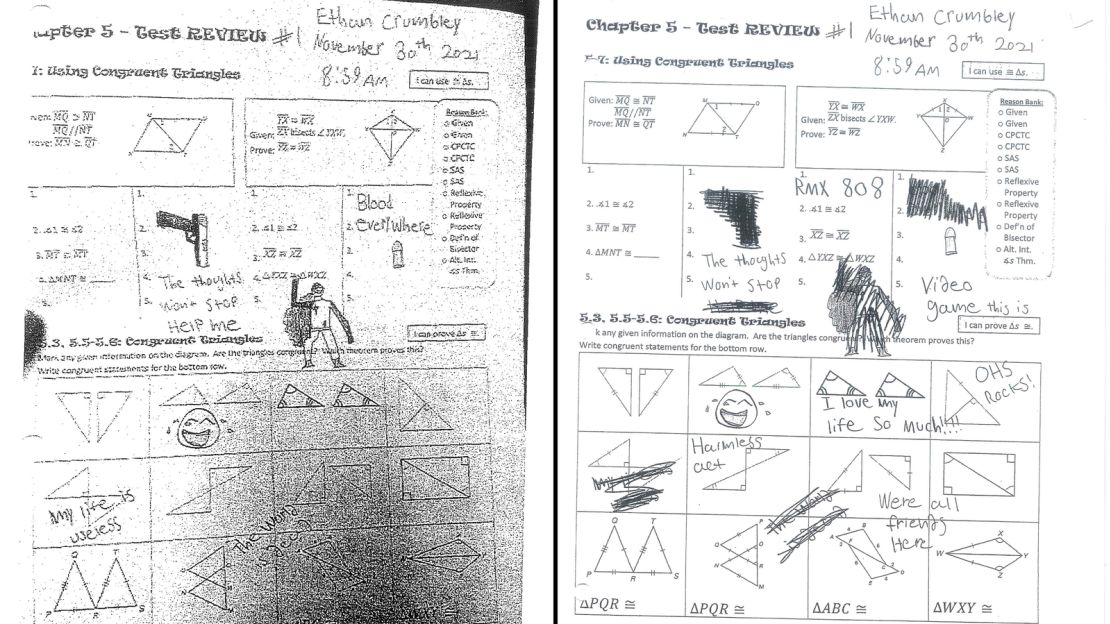 Chapter 5 - Test REVIEW #1
Ethan Crumbley
November 30th 2021
8:59 AM
1: Using Congruent Triangles
I can use ≅ Δs.
MQ ≅ NT
MQ//NT
MN ≅ QT
YX ≅ WX
Given: ZX bisects ∠YXW.
Prove: YZ ≅ WZ
Reason Bank:
o Given
o Given
o CPCTC
o CPCTC
o SAS
o SAS
o Reflexive
Property
o Reflexive
Property
o Def'n of
Bisector
o Alt. Int.
∡s Thm.
1.
2. ∡1 ≅ ∡2
3. MT ≅ MT
4. ΔMNT ≅ ____
5.
1.
2.
3.
4. The thoughts
5. Won't Stop
HELP me
1.
2. ∡1 ≅ ∡2
3. XZ ≅ XZ
4. ΔYXZ ≅ ΔWXZ
5.
1.
Blood
2. everywhere
3.
4.
5.
5.3, 5.5-5.6: Congruent Triangles
I can prove Δs ≅.
Mark any given information on the diagram. Are the triangles congruent? Which theorem proves this?
Write congruent statements for the bottom row.
My life is
useless
The World
is Dead
Q T
P R S
Chapter 5 - Test REVIEW #1
Ethan Crumbley
November 30th 2021
8:59 AM
7: Using Congruent Triangles
I can use ≅ Δs.
Given: MQ ≅ NT
MQ//NT
Prove: MN ≅ QT
YX ≅ WX
Given: ZX bisects ∠YXW.
Prove: YZ ≅ WZ
Reason Bank:
o Given
o Given
o CPCTC
o CPCTC
o SAS
o SAS
o Reflexive
Property
o Reflexive
Property
o Def'n of
Bisector
o Alt. Int.
∡s Thm.
1.
2. ∡1 ≅ ∡2
3. MT ≅ MT
4. ΔMNT ≅ ____
5.
1.
2.
3.
4. The thoughts
5. Won't Stop
1.
RMX 808
2. ∡1 ≅ ∡2
3. XZ ≅ XZ
4. ΔYXZ ≅ ΔWXZ
5.
1.
2.
3.
4.
5. Video
game this is
5.3, 5.5-5.6: Congruent Triangles
I can prove Δs ≅.
k any given information on the diagram. Are the triangles congruent? Which theorem proves this?
Write congruent statements for the bottom row.
I love my
life So Much!!!!
OHS
Rocks!
Harmless
act
We're all
friends
Here
Q T
P R S
ΔPQR ≅
ΔPQR ≅
ΔABC ≅
W X Y Z
ΔWXY ≅